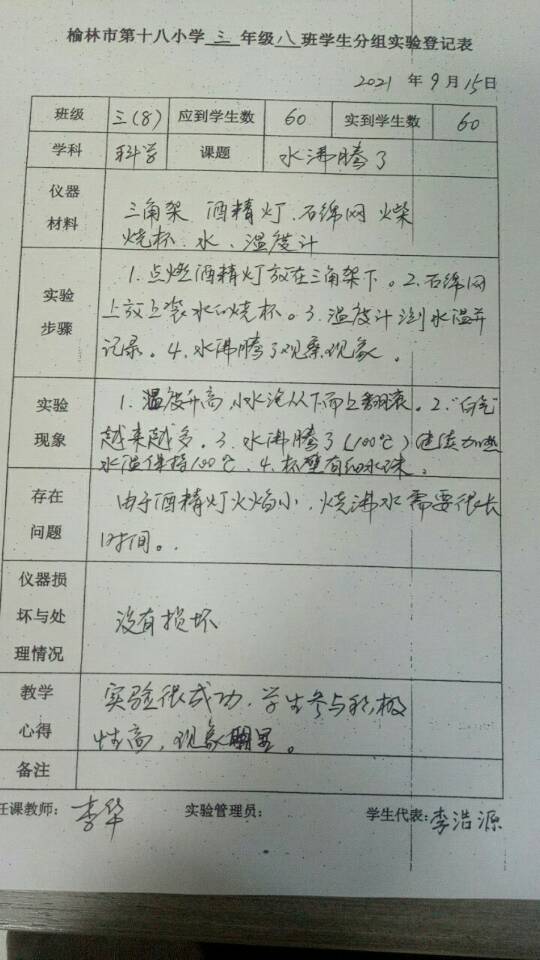 榆林市第十八小学三年级八班学生分组实验登记表
2021年9月15日
班级 三(8) 应到学生数 60 实到学生数 60
学科 科学 课题 水沸腾了
仪器
材料
三角架 酒精灯、石绵网 火柴
烧杯、水、温度计
实验
步骤
1.点燃酒精灯放在三角架下。2.石绵网
上放上装水的烧杯。3.温度计测水温并
记录。4.水沸腾了观察现象。
实验
现象
1.温度升高,小水泡从下而上翻滚。2."白气"
越来越多。3.水沸腾了(100℃)继续加热
水温保持100℃。4.杯壁有细水珠。
存在
问题
由于酒精灯火焰小,烧沸水需要很长
时间。
仪器损
坏与处
理情况
没有损坏
教学
心得
实验很成功,学生参与积极
性高,现象明显。
备注
任课教师: 李华 实验管理员: 学生代表: 李浩源